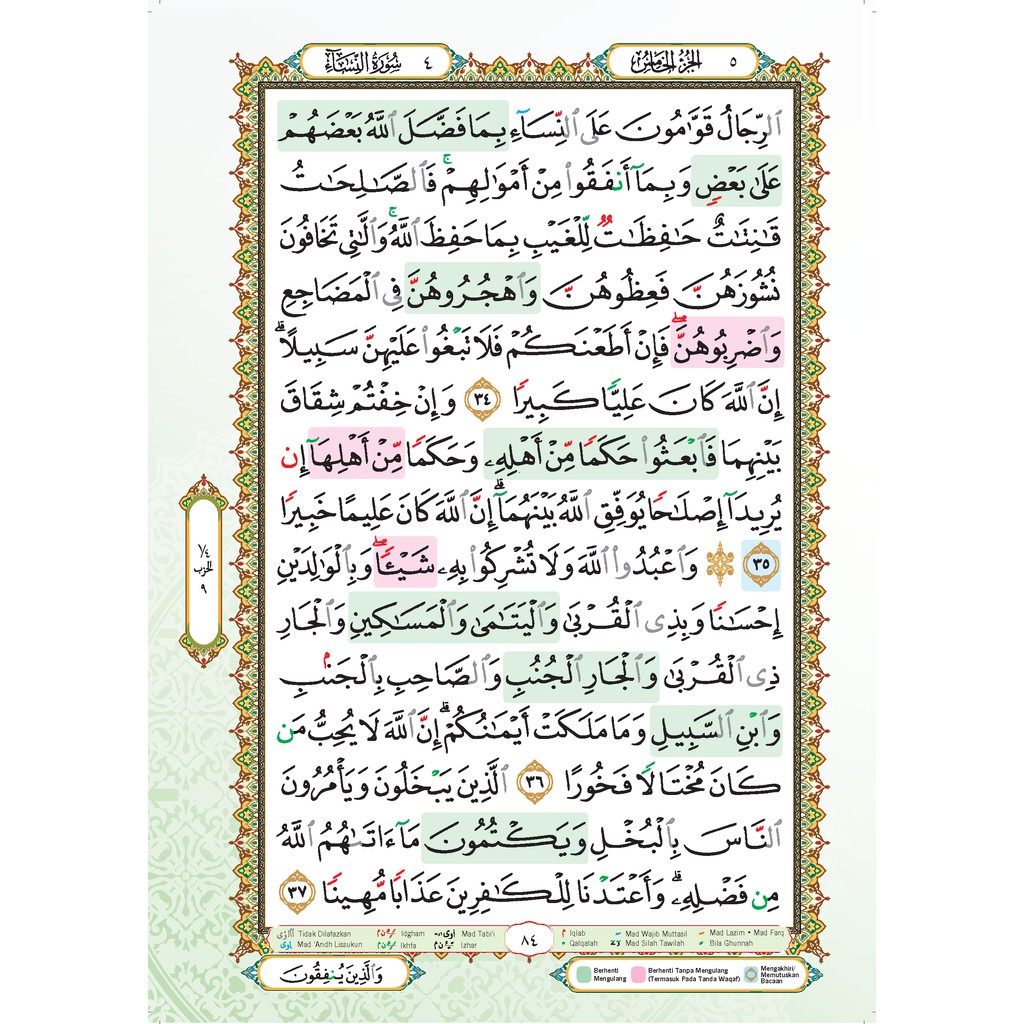 سُورَةُ النِّسَاءِ ٤
الجُزْءُ الخَامِسُ ٥
ٱلرِّجَالُ قَوَّٰمُونَ عَلَى ٱلنِّسَآءِ بِمَا فَضَّلَ ٱللَّهُ بَعْضَهُمْ
عَلَىٰ بَعْضٍ وَبِمَآ أَنفَقُوا۟ مِنْ أَمْوَٰلِهِمْ ۚ فَٱلصَّٰلِحَٰتُ
قَٰنِتَٰتٌ حَٰفِظَٰتٌ لِّلْغَيْبِ بِمَا حَفِظَ ٱللَّهُ ۚ وَٱلَّٰتِى تَخَافُونَ
نُشُوزَهُنَّ فَعِظُوهُنَّ وَٱهْجُرُوهُنَّ فِى ٱلْمَضَاجِعِ
وَٱضْرِبُوهُنَّ ۖ فَإِنْ أَطَعْنَكُمْ فَلَا تَبْغُوا۟ عَلَيْهِنَّ سَبِيلًا ۗ
إِنَّ ٱللَّهَ كَانَ عَلِيًّا كَبِيرًا ٣٤ وَإِنْ خِفْتُمْ شِقَاقَ
بَيْنِهِمَا فَٱبْعَثُوا۟ حَكَمًا مِّنْ أَهْلِهِۦ وَحَكَمًا مِّنْ أَهْلِهَآ إِن
يُرِيدَآ إِصْلَٰحًا يُوَفِّقِ ٱللَّهُ بَيْنَهُمَآ ۗ إِنَّ ٱللَّهَ كَانَ عَلِيمًا خَبِيرًا
٣٥ ۞ وَٱعْبُدُوا۟ ٱللَّهَ وَلَا تُشْرِكُوا۟ بِهِۦ شَيْـًٔا ۖ وَبِٱلْوَٰلِدَيْنِ
إِحْسَٰنًا وَبِذِى ٱلْقُرْبَىٰ وَٱلْيَتَٰمَىٰ وَٱلْمَسَٰكِينِ وَٱلْجَارِ
ذِى ٱلْقُرْبَىٰ وَٱلْجَارِ ٱلْجُنُبِ وَٱلصَّاحِبِ بِٱلْجَنۢبِ
وَٱبْنِ ٱلسَّبِيلِ وَمَا مَلَكَتْ أَيْمَٰنُكُمْ ۗ إِنَّ ٱللَّهَ لَا يُحِبُّ مَن
كَانَ مُخْتَالًا فَخُورًا ٣٦ ٱلَّذِينَ يَبْخَلُونَ وَيَأْمُرُونَ
ٱلنَّاسَ بِٱلْبُخْلِ وَيَكْتُمُونَ مَآ ءَاتَىٰهُمُ ٱللَّهُ
مِن فَضْلِهِۦ ۗ وَأَعْتَدْنَا لِلْكَٰفِرِينَ عَذَابًا مُّهِينًا ٣٧
١/٤
الحزب
٩
Tidak Dilafazkan
Idgham
Mad Tabi'i
٨٤
Iqlab
Mad Wajib Muttasil
Mad Lazim • Mad Farq
Mad 'Aridh Lissukun
Ikhfa
Izhar
Qalqalah
Mad Silah Tawilah
Bila Ghunnah
وَٱلَّذِينَ يُنفِقُونَ
Berhenti Mengulang
Berhenti Tanpa Mengulang
(Termasuk Pada Tanda Waqaf)
Mengakhiri/
Memutuskan
Bacaan